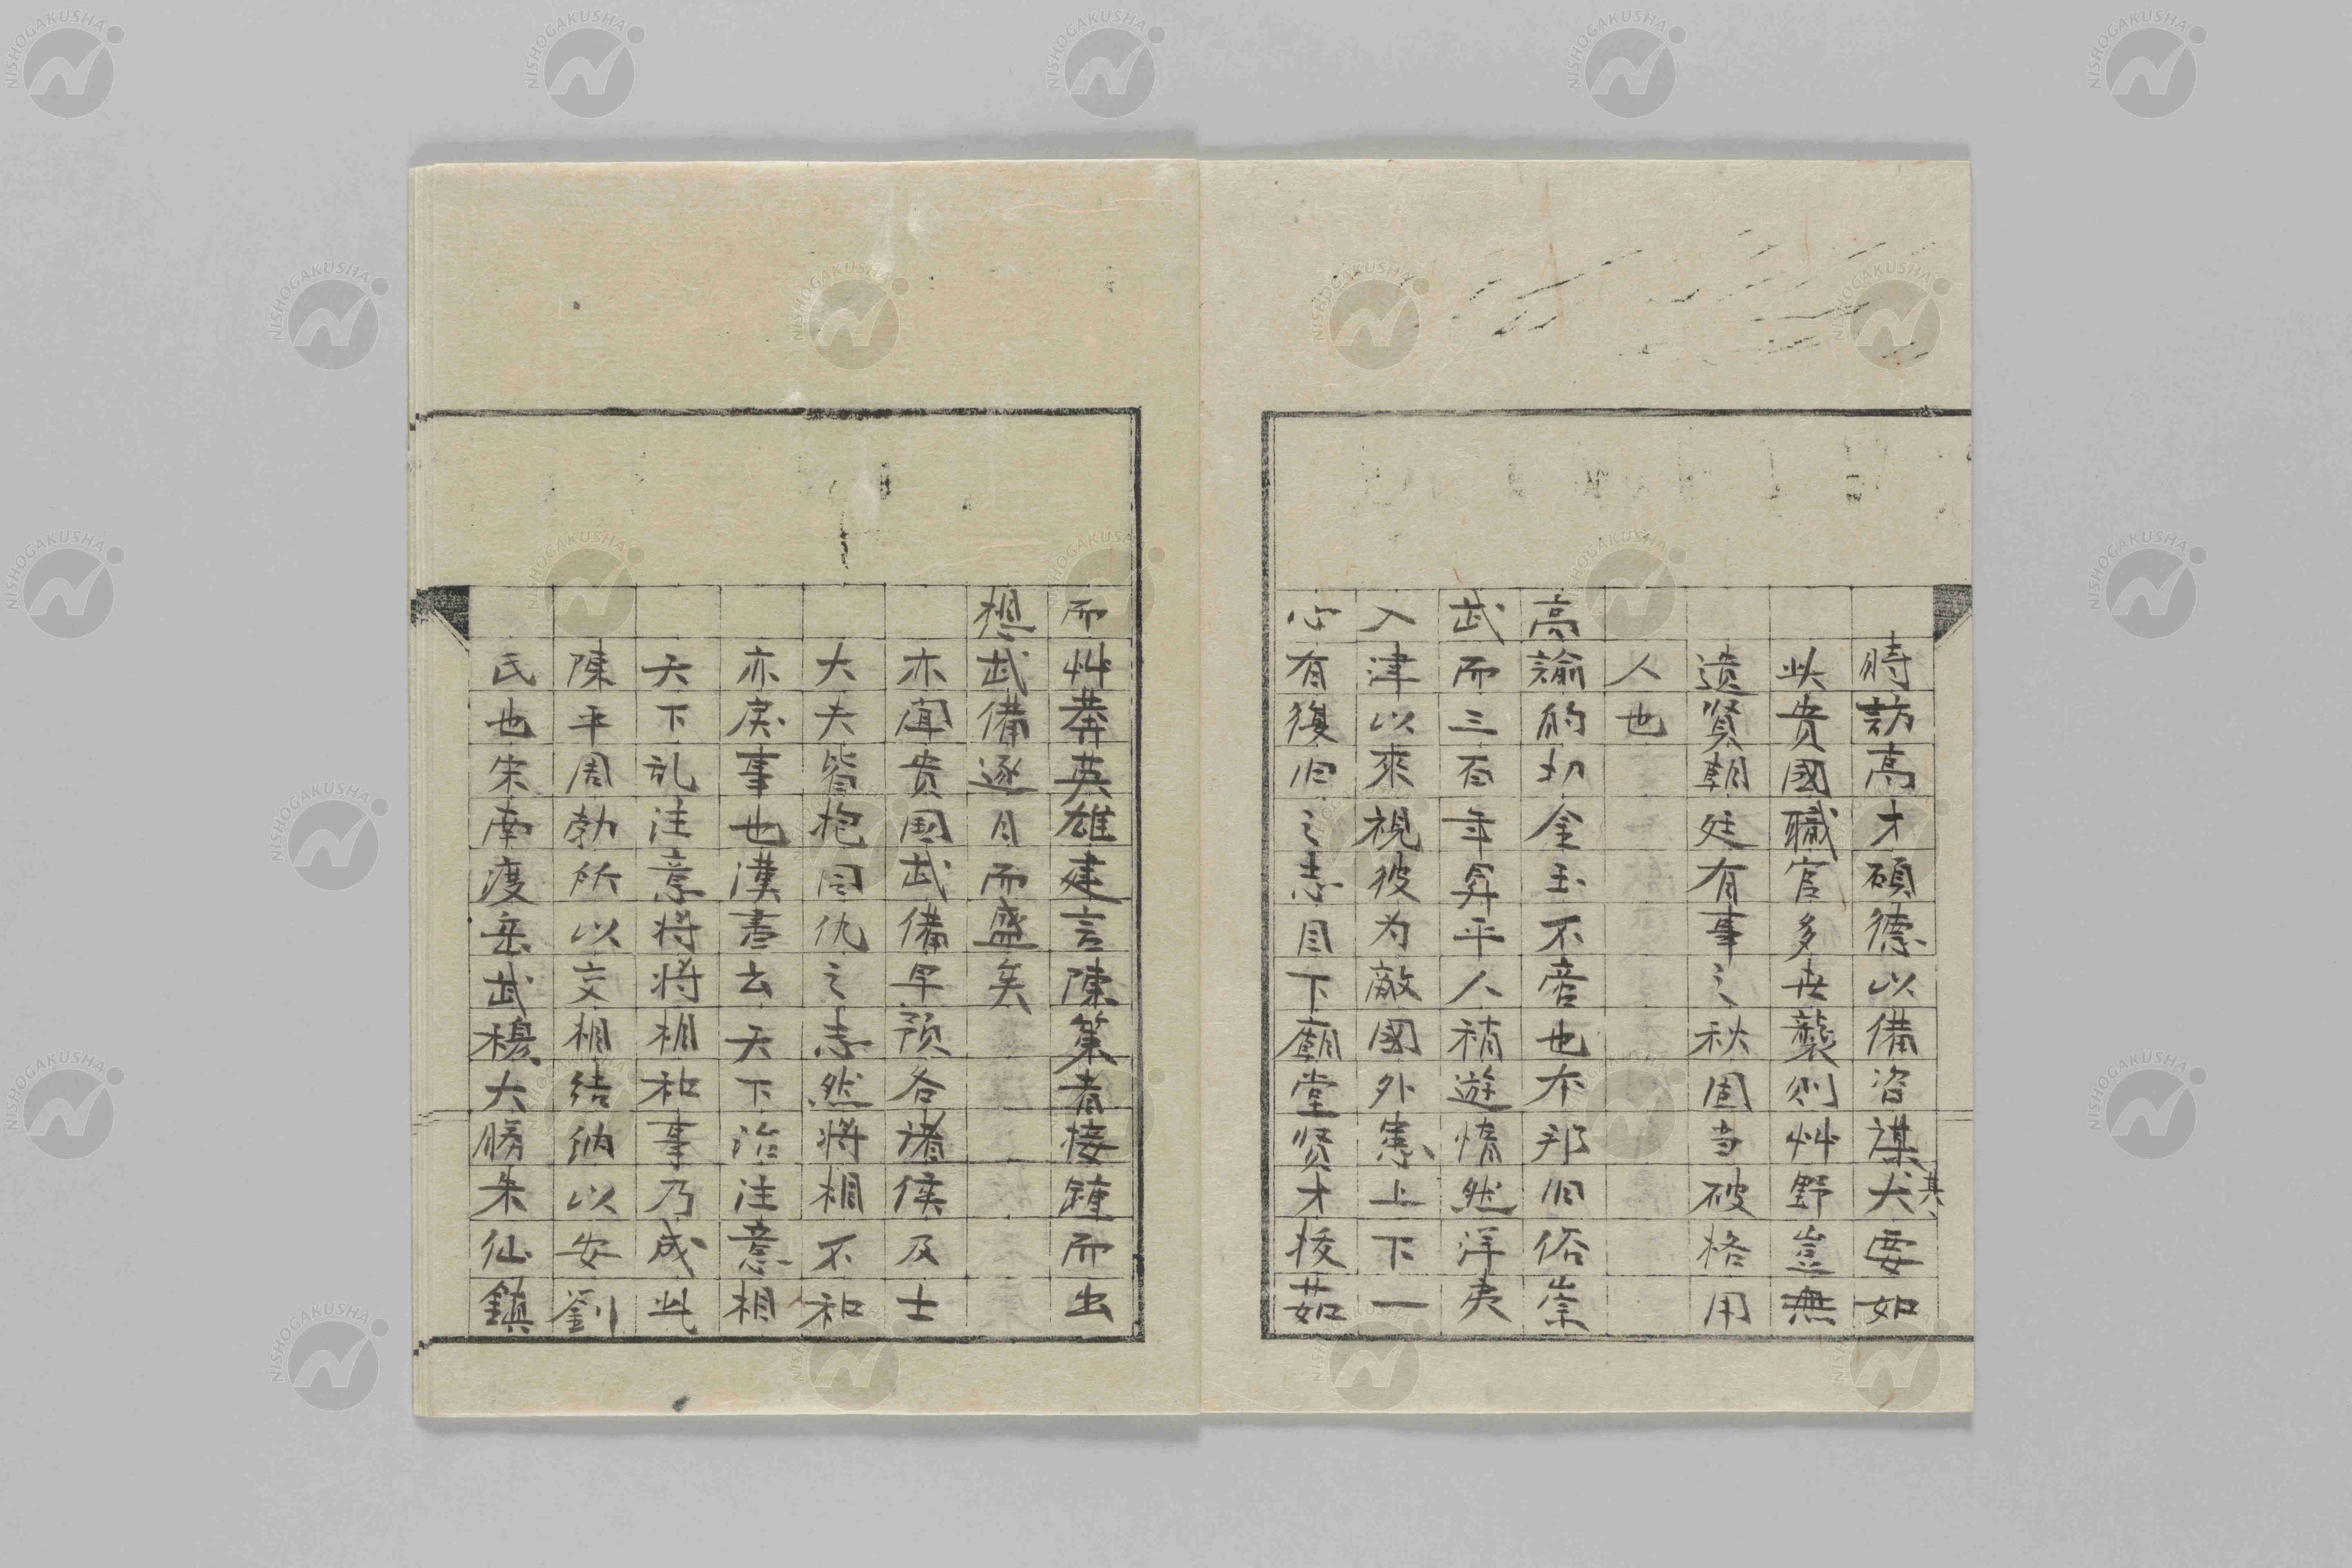 時訪高才碩德以備咨謀犬要如
其
此贵國職官多世襲則艸野豈無
遺賢朝廷有事之秋固当破格用
人也
高諭的切金玉不啻也本邦旧俗崇
武而三百年昇平人稍遊惰然洋夷
入津以來視彼为敵國外患上下一
心有復旧之志目下廟堂贤才抜茹
而艸莽英雄建言陳策者接踵而出
想武備逐日而盛矣
亦闻贵国武備早预各诸侯及士
大夫皆抱同仇之志然將相不和
亦戾事也漢書云天下治注意相
天下乱注意將將相和事乃成此
陳平周勃所以交相结纳以安劉
氏也宋南渡岳武穆大勝朱仙鎮
NISHOGAKUSHA